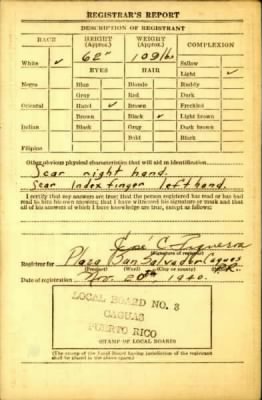 REGISTRAR'S REPORT
DESCRIPTION OF REGISTRANT
RACE HEIGHT (Approx.) WEIGHT (Approx.) COMPLEXION
White ✓ 62" 109 lbs. Sallow
EYES HAIR Light ✓
Negro Blue Blonde Ruddy
Gray Red Dark
Oriental Hazel ✓ Brown Freckled
Brown Black ✓ Light brown
Indian Black Gray Dark brown
Bald Black
Filipino
Other obvious physical characteristics that will aid in identification
Scar right hand.
Scar Index finger left hand.
I certify that my answers are true; that the person registered has read or has had read to him his own answers; that I have witnessed his signature or mark and that all of his answers of which I have knowledge are true, except as follows:
Jose C. Figueroa
(Signature of registrar)
Registrar for Plaza San Salvador Caguas P.R.
(Precinct) (Ward) (City or county)
Date of registration Nov. 20th, 1940.
LOCAL BOARD NO. 3
CAGUAS
PUERTO RICO
(STAMP OF LOCAL BOARD)
(The stamp of the Local Board having jurisdiction of the registrant shall be placed in the above space.)